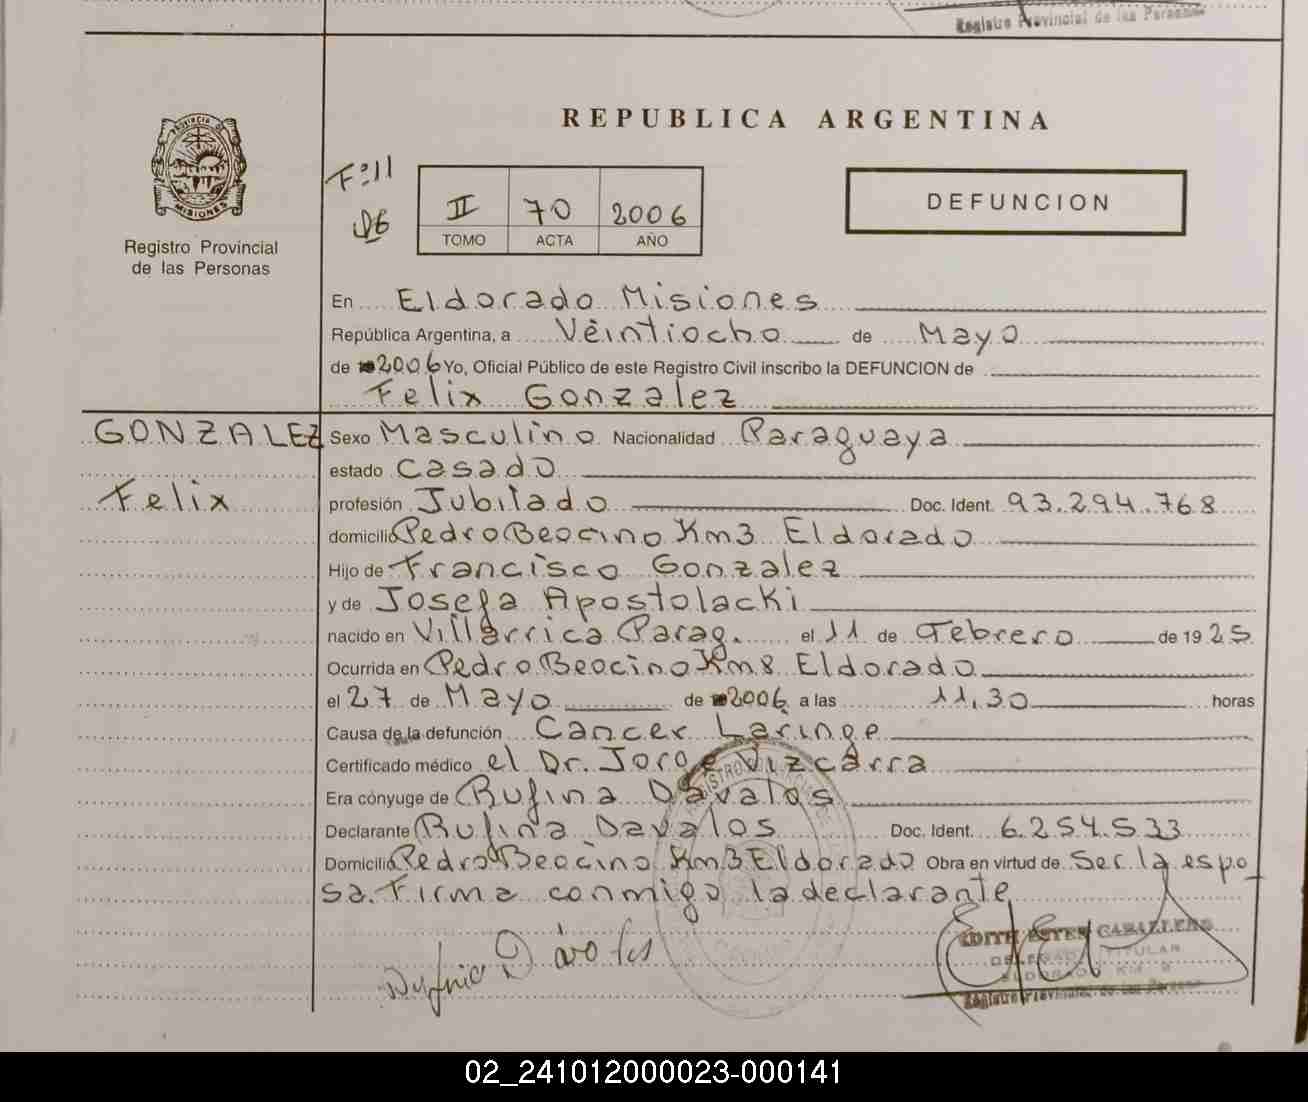 Registro Provincial de las Personas
PROVINCIA DE
MISIONES
Registro Provincial
de las Personas
REPUBLICA ARGENTINA
Fº 11
II 70 2006
TOMO ACTA AÑO
DEFUNCION
En Eldorado Misiones
República Argentina, a Veintiocho de Mayo
de 2006 Yo, Oficial Público de este Registro Civil inscribo la DEFUNCION de
Felix Gonzalez
GONZALEZ
Felix
Sexo Masculino Nacionalidad Paraguaya
estado Casado
profesión Jubilado Doc. Ident. 93.294.768
domicilio Pedro Beocino Km3 Eldorado
Hijo de Francisco Gonzalez
y de Josefa Apostolacki
nacido en Villarrica Parag. el 11 de Febrero de 1925
Ocurrida en Pedro Beocino Km8 Eldorado
el 27 de Mayo de 2006 a las 11,30 horas
Causa de la defunción Cancer Laringe
Certificado médico el Dr. Jorge Vizcarra
Era cónyuge de Rufina Davalos
Declarante Rufina Davalos Doc. Ident. 6.254.533
Domicilio Pedro Beocino Km3 Eldorado Obra en virtud de Ser la espo
sa. Firma conmigo la declarante
EDITH ESTER CABALLERO
TITULAR
ELDORADO KM. 9
Registro Provincial de las Personas
02_241012000023-000141